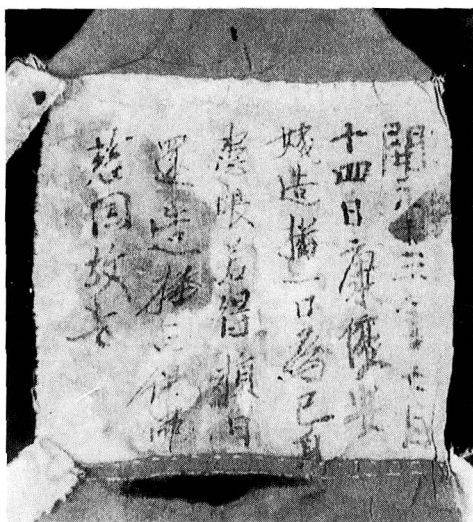 開元十三年七月
十四日康優婆
姨造播一口為己身
患眼若得損日
還造播一口保佛
慈因故告